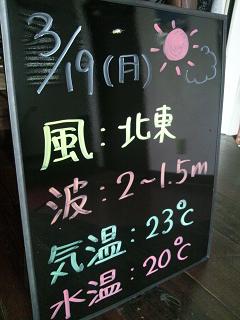 3/19(月)
風:北東
波:2~1.5m
気温:23℃
水温:20℃